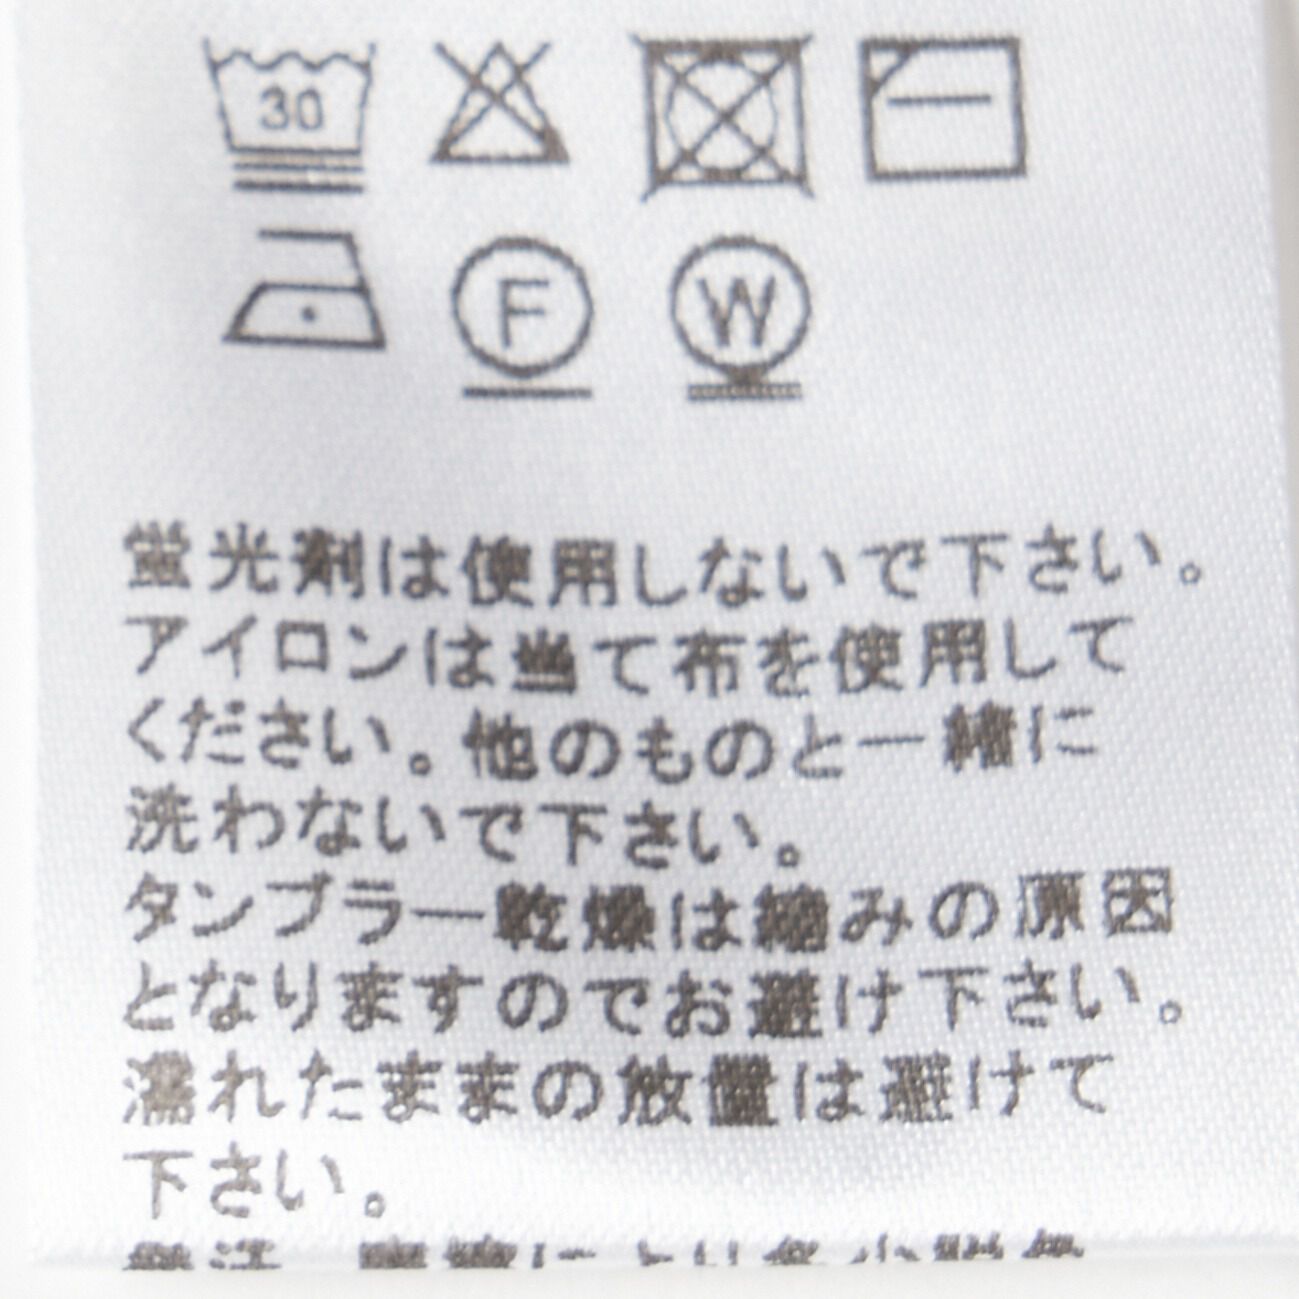 30
F W
蛍光剤は使用しないで下さい。
アイロンは当て布を使用して
ください。他のものと一緒に
洗わないで下さい。
タンブラー乾燥は縮みの原因
となりますのでお避け下さい。
濡れたままの放置は避けて
下さい。